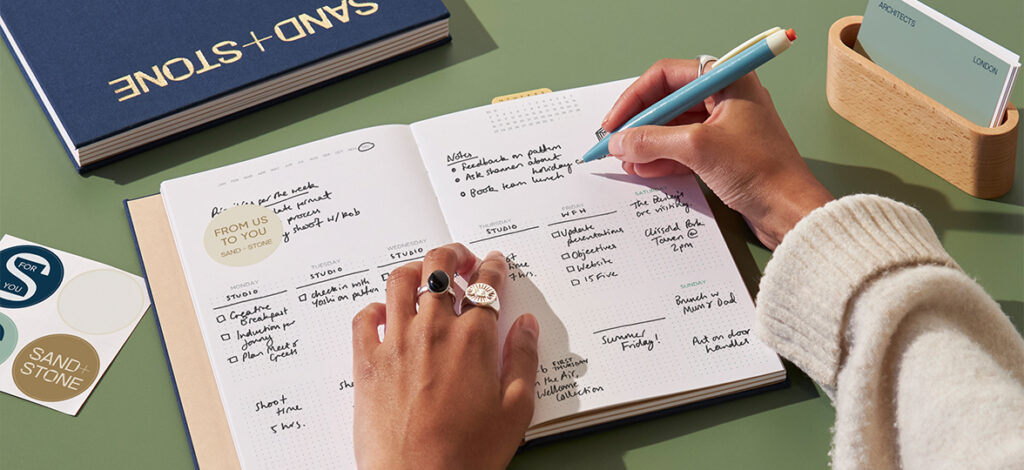 SAND+STONE
ARCHITECTS
LONDON
Notes
• Feedback on pattern
• Ask Shannon about holiday
• Book team lunch
per the week
process
w/ Rob
FROM US
TO YOU
SAND+STONE
MONDAY
STUDIO
Creative
Breakfast
Induction for
Jonny
Plan Meet &
Greets
Shoot
time
5 hrs.
TUESDAY
STUDIO
check in with
Yoshi on pattern
WEDNESDAY
STUDIO
THURSDAY
STUDIO
hrs.
FIRST
THURSDAY
in the Air,
Wellcome
Collection
FRIDAY
WFH
Update
presentations
Objectives
Website
15 Five
Summer
Friday!
SATURDAY
The Baileys
are visiting
Clissold Park
Tavern @
2pm
SUNDAY
Brunch w
Mum & Dad
Put on door
handles
S
FOR
YOU
SAND+
STONE